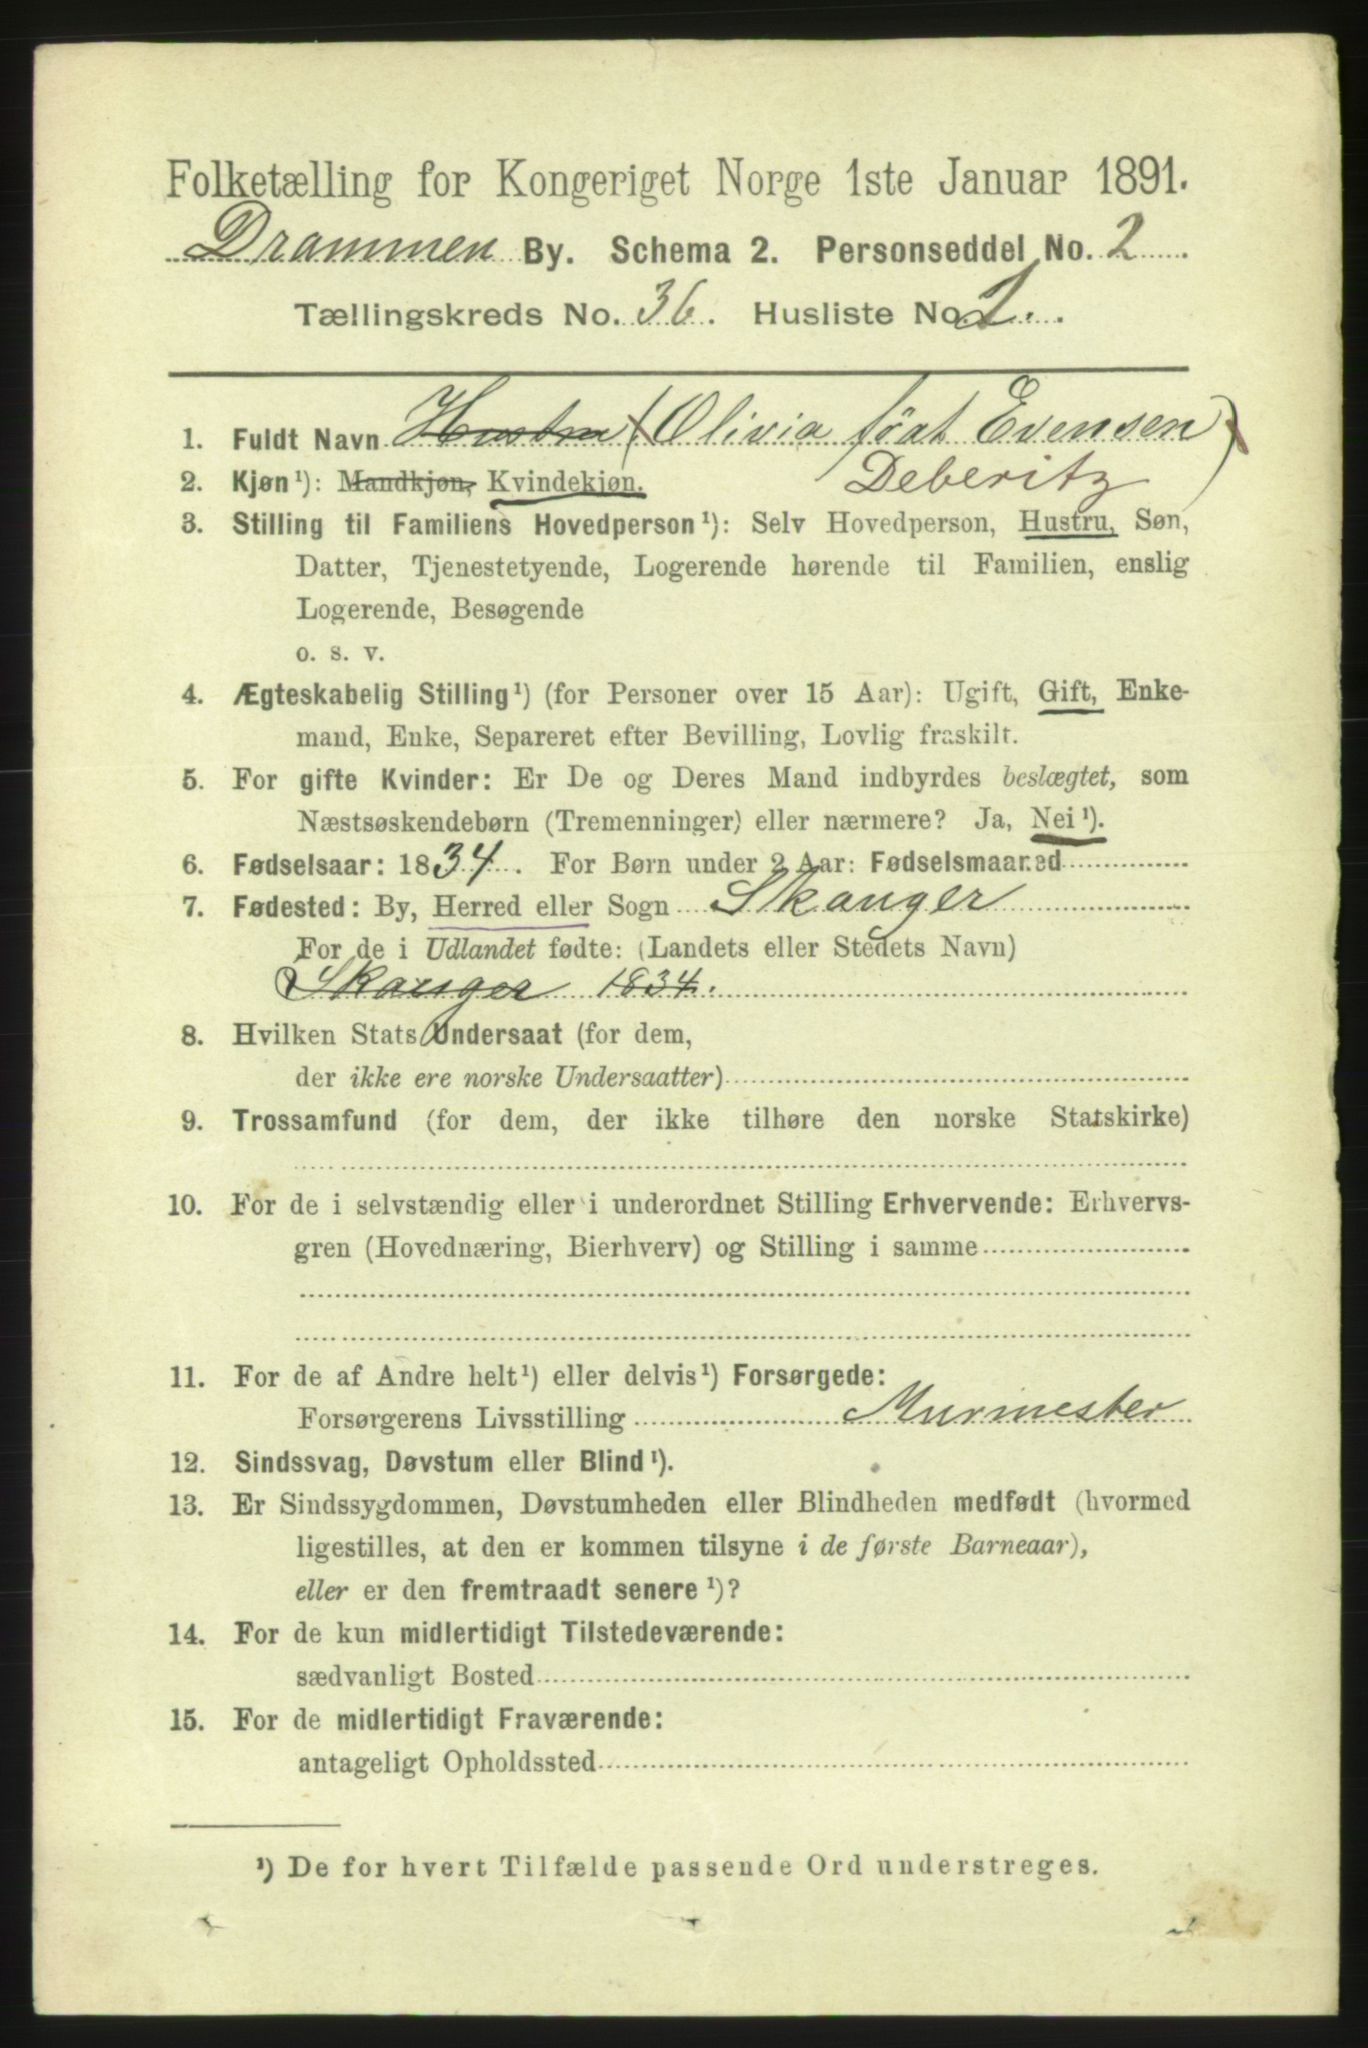 Folketælling for Kongeriget Norge 1ste Januar 1891.
Drammen By. Schema 2. Personseddel No. 2
Tællingskreds No. 36. Husliste No 1.
1. Fuldt Navn Hustru (Olivia föat Evensen)
Deberitz
2. Kjøn¹): Mandkjøn, Kvindekjøn.
3. Stilling til Familiens Hovedperson¹): Selv Hovedperson, Hustru, Søn,
Datter, Tjenestetyende, Logerende hørende til Familien, enslig
Logerende, Besøgende
o. s. v.
4. Ægteskabelig Stilling¹) (for Personer over 15 Aar): Ugift, Gift, Enke-
mand, Enke, Separeret efter Bevilling, Lovlig fraskilt.
5. For gifte Kvinder: Er De og Deres Mand indbyrdes beslægtet, som
Næstsøskendebørn (Tremenninger) eller nærmere? Ja, Nei¹).
6. Fødselsaar: 1834. For Børn under 2 Aar: Fødselsmaaned
7. Fødested: By, Herred eller Sogn Skauger
For de i Udlandet fødte: (Landets eller Stedets Navn)
Skauger 1834.
8. Hvilken Stats Undersaat (for dem,
der ikke ere norske Undersaatter)
9. Trossamfund (for dem, der ikke tilhøre den norske Statskirke)
10. For de i selvstændig eller i underordnet Stilling Erhvervende: Erhvervs-
gren (Hovednæring, Bierhverv) og Stilling i samme
11. For de af Andre helt¹) eller delvis¹) Forsørgede:
Forsørgerens Livsstilling Murmester
12. Sindssvag, Døvstum eller Blind¹).
13. Er Sindssygdommen, Døvstumheden eller Blindheden medfødt (hvormed
ligestilles, at den er kommen tilsyne i de første Barneaar),
eller er den fremtraadt senere¹)?
14. For de kun midlertidigt Tilstedeværende:
sædvanligt Bosted
15. For de midlertidigt Fraværende:
antageligt Opholdssted
¹) De for hvert Tilfælde passende Ord understreges.